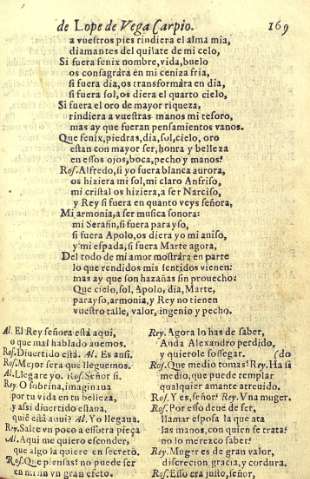 de Lope de Vega Carpio. 169
a vuestros pies rindiera el alma mia,
diamantes del quilate de mi celo,
Si fuera fenix nombre, vida, buelo
os consagrára en mi ceniza fria,
si fuera dia, os transformára en dia,
si fuera sol, os diera el quarto cielo,
Si fuera el oro de mayor riqueza,
rindiera a vuestras manos mi tesoro,
mas ay que fueran pensamientos vanos.
Que fenix, piedras, dia, sol, cielo, oro
estan con mayor ser, honra y belleza
en essos ojos, boca, pecho y manos.
Ros. Alfredo, si yo fuera blanca aurora,
os hiziera mi sol, mi claro Anfriso,
mi cristal os hiziera, a ser Narciso,
y Rey si fuera en quanto veys señora,
Mi armonia, a ser musica sonora:
mi Serafin, si fuera parayso,
si fuera Apolo, os diera yo mi auiso,
y mi espada, si fuera Marte agora,
Del todo de mi amor mostrára en parte
lo que rendidos mis sentidos vienen:
mas ay que son hazañas sin prouecho:
Que cielo, sol, Apolo, dia, Marte,
parayso, armonia, y Rey no tienen
vuestro talle, valor, ingenio y pecho.
Al. El Rey señora está aqui,
o que mal hablado auemos.
Ros. Diuertido está. Al. Es ansi.
Ros. Mejor sera que lleguemos.
Al. Llegare yo. Ros. Señor si.
Rey. O sobrina, imaginaua
por tu vida en tu belleza,
y assi diuertido estaua,
quië está aqui? Al. Yo llegaua.
Rey. Salte vn poco a essotra pieça
Al. Aqui me quiero esconder,
que algo la quiere en secreto.
Ros. Que piensas? no puede ser
en mi un gran efeto.
Rey. Agora lo has de saber,
Anda Alexandro perdido,
y quierole sossegar. (do
Ros. Que medio tomas? Rey. Ha si
medio, que puede templar
qualquier amante atreuido.
Ros. Y es, señor? Rey. Vna muger.
Ros. Por esso deue de ser,
llamar esposa la que ata
las manos, con quien se trata?
no lo merezco saber?
Rey. Muger es de gran valor,
discrecion gracia, y cordura.
Ros. Esso era justo, señor,